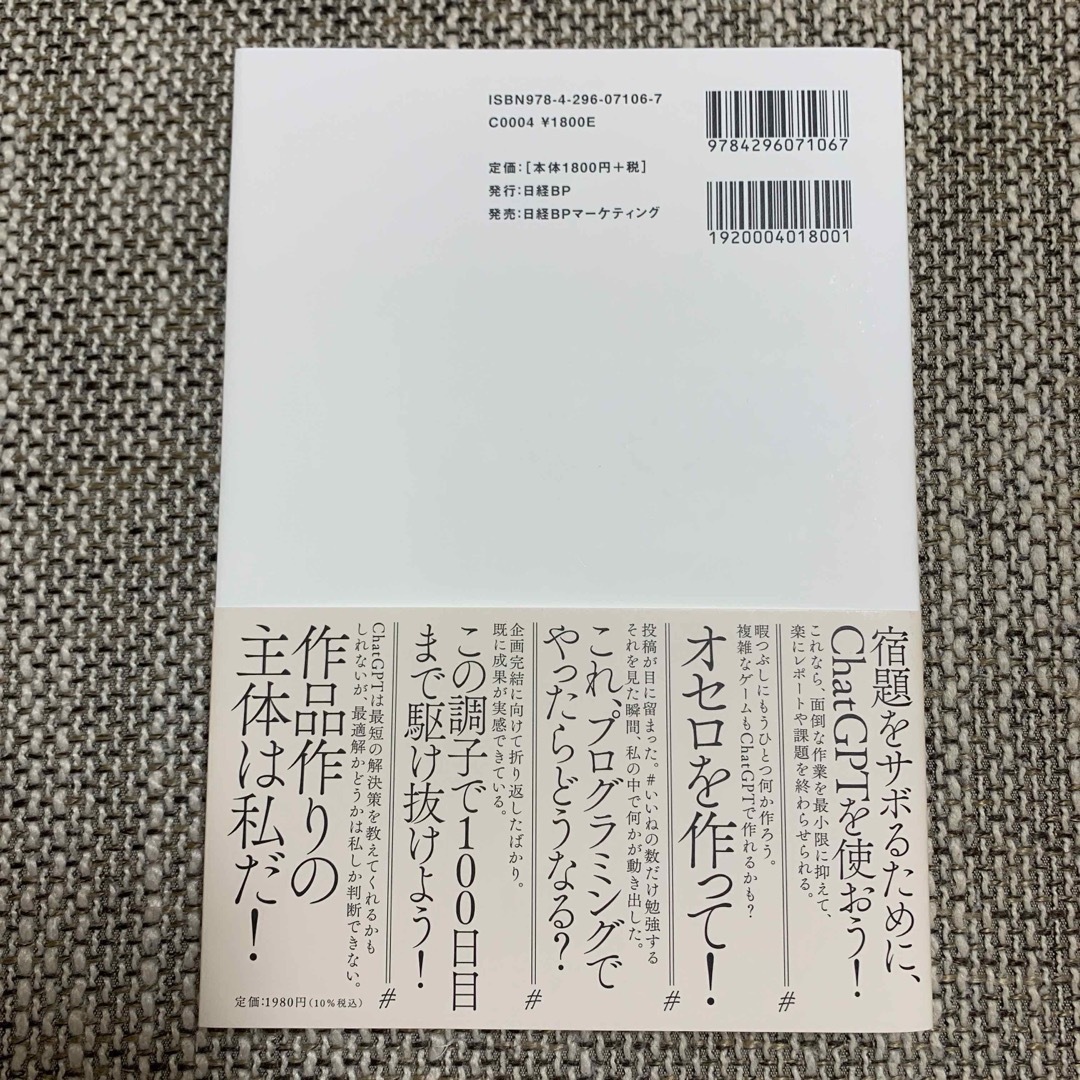 ISBN978-4-296-07106-7
C0004 ¥1800E
定価：［本体1800円＋税］
発行：日経BP
発売：日経BPマーケティング
9784296071067
1920004018001
宿題をサボるために、
ChatGPTを使おう！
これなら、面倒な作業を最小限に抑えて、
楽にレポートや課題を終わらせられる。
#
オセロを作って！
暇つぶしにもうひとつ何か作ろう。
複雑なゲームもChatGPTで作れるかも？
#
投稿が目に留まった。#いいねの数だけ勉強する
それを見た瞬間、私の中で何かが動き出した。
これ、プログラミングで
やったらどうなる？
#
企画完結に向けて折り返したばかり。
既に成果が実感できている。
この調子で100日目
まで駆け抜けよう！
#
ChatGPTは最短の解決策を教えてくれるかも
しれないが、最適解かどうかは私しか判断できない。
作品作りの
主体は私だ！
定価：1980円（10%税込）